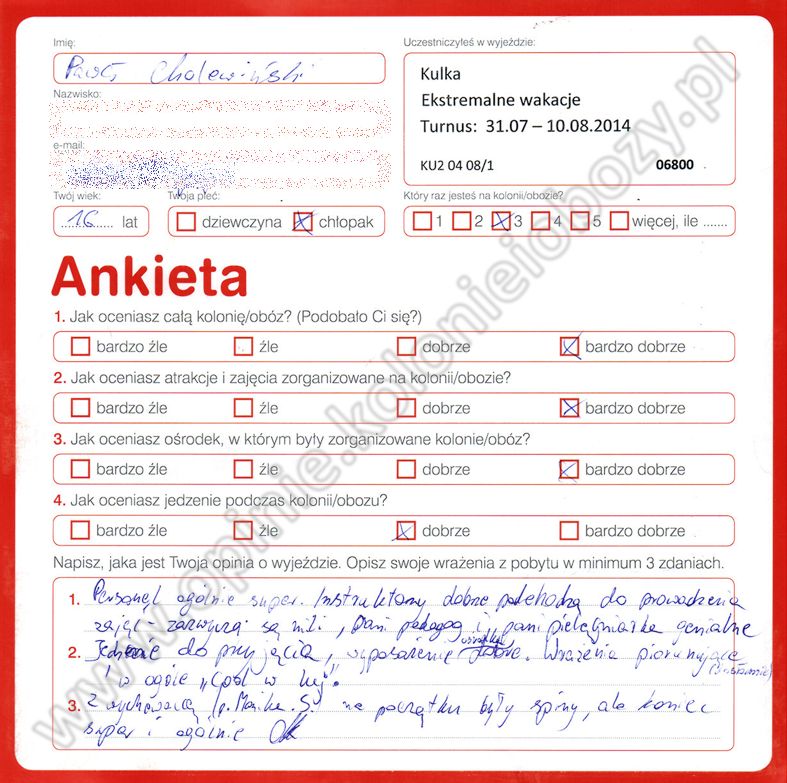 Imię:
Paweł Cholewiński
Nazwisko:
e-mail:
Twój wiek:
16 lat
Twoja płeć:
dziewczyna chłopak
Uczestniczyłeś w wyjeździe:
Kulka
Ekstremalne wakacje
Turnus: 31.07 – 10.08.2014
KU2 04 08/1 06800
Który raz jesteś na kolonii/obozie?
1 2 3 4 5 więcej, ile .......
Ankieta
1. Jak oceniasz całą kolonię/obóz? (Podobało Ci się?)
bardzo źle źle dobrze bardzo dobrze
2. Jak oceniasz atrakcje i zajęcia zorganizowane na kolonii/obozie?
bardzo źle źle dobrze bardzo dobrze
3. Jak oceniasz ośrodek, w którym były zorganizowane kolonie/obóz?
bardzo źle źle dobrze bardzo dobrze
4. Jak oceniasz jedzenie podczas kolonii/obozu?
bardzo źle źle dobrze bardzo dobrze
Napisz, jaka jest Twoja opinia o wyjeździe. Opisz swoje wrażenia z pobytu w minimum 3 zdaniach.
1. Personel ogólnie super. Instruktorzy dobrze podchodzą do prowadzenia
zajęć - zazwyczaj są mili, pani pedagog i pani pielęgniarka genialne
2. Jedzenie do przyjęcia, wyposażenie dobre. Wrażenia piorunujące
i w ogóle "cool w
3. z wychowawcą (p. Monika S.) na początku były spiny, ale koniec
super i ogólnie OK
www.opinie.kolonieiobozy.pl